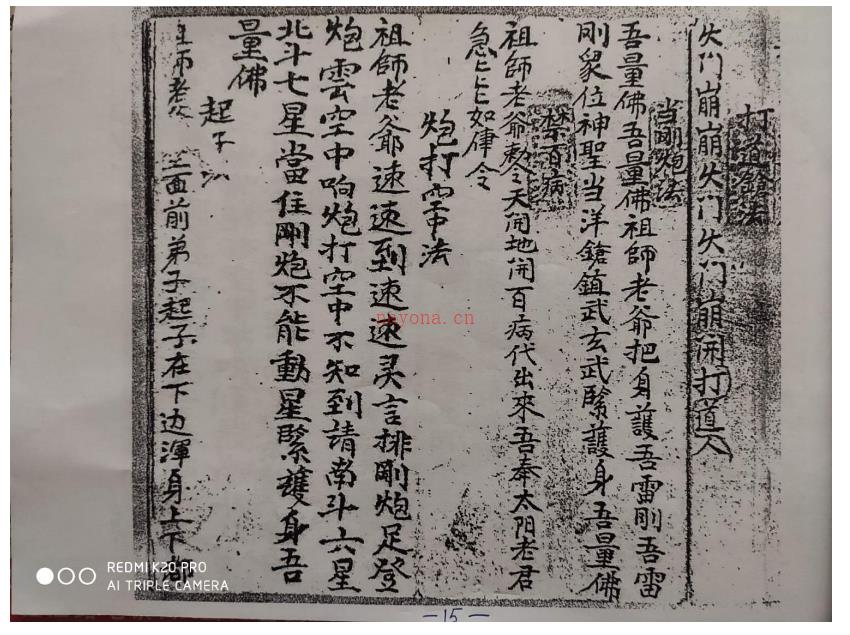 打道鎗法
失门崩崩失门失门崩開打道人
当剛炮法
吾量佛吾量佛祖師老爷把身護吾雷剛吾雷
剛衆位神聖当洋鎗鎮武玄武緊護身吾量佛
禁百病
祖師老爷敕令天開地開百病代出來吾奉太阳老君
急急如律令
炮打空中法
祖師老爺速速到速速灵言排剛炮足登
炮雲空中响炮打空中不知到請南斗六星
北斗七星當住剛炮不能動星緊護身吾
量佛
起子
面前弟子起子在下边渾身上下
nayona.cn
REDMI K20 PRO
AI TRIPLE CAMERA
-15-